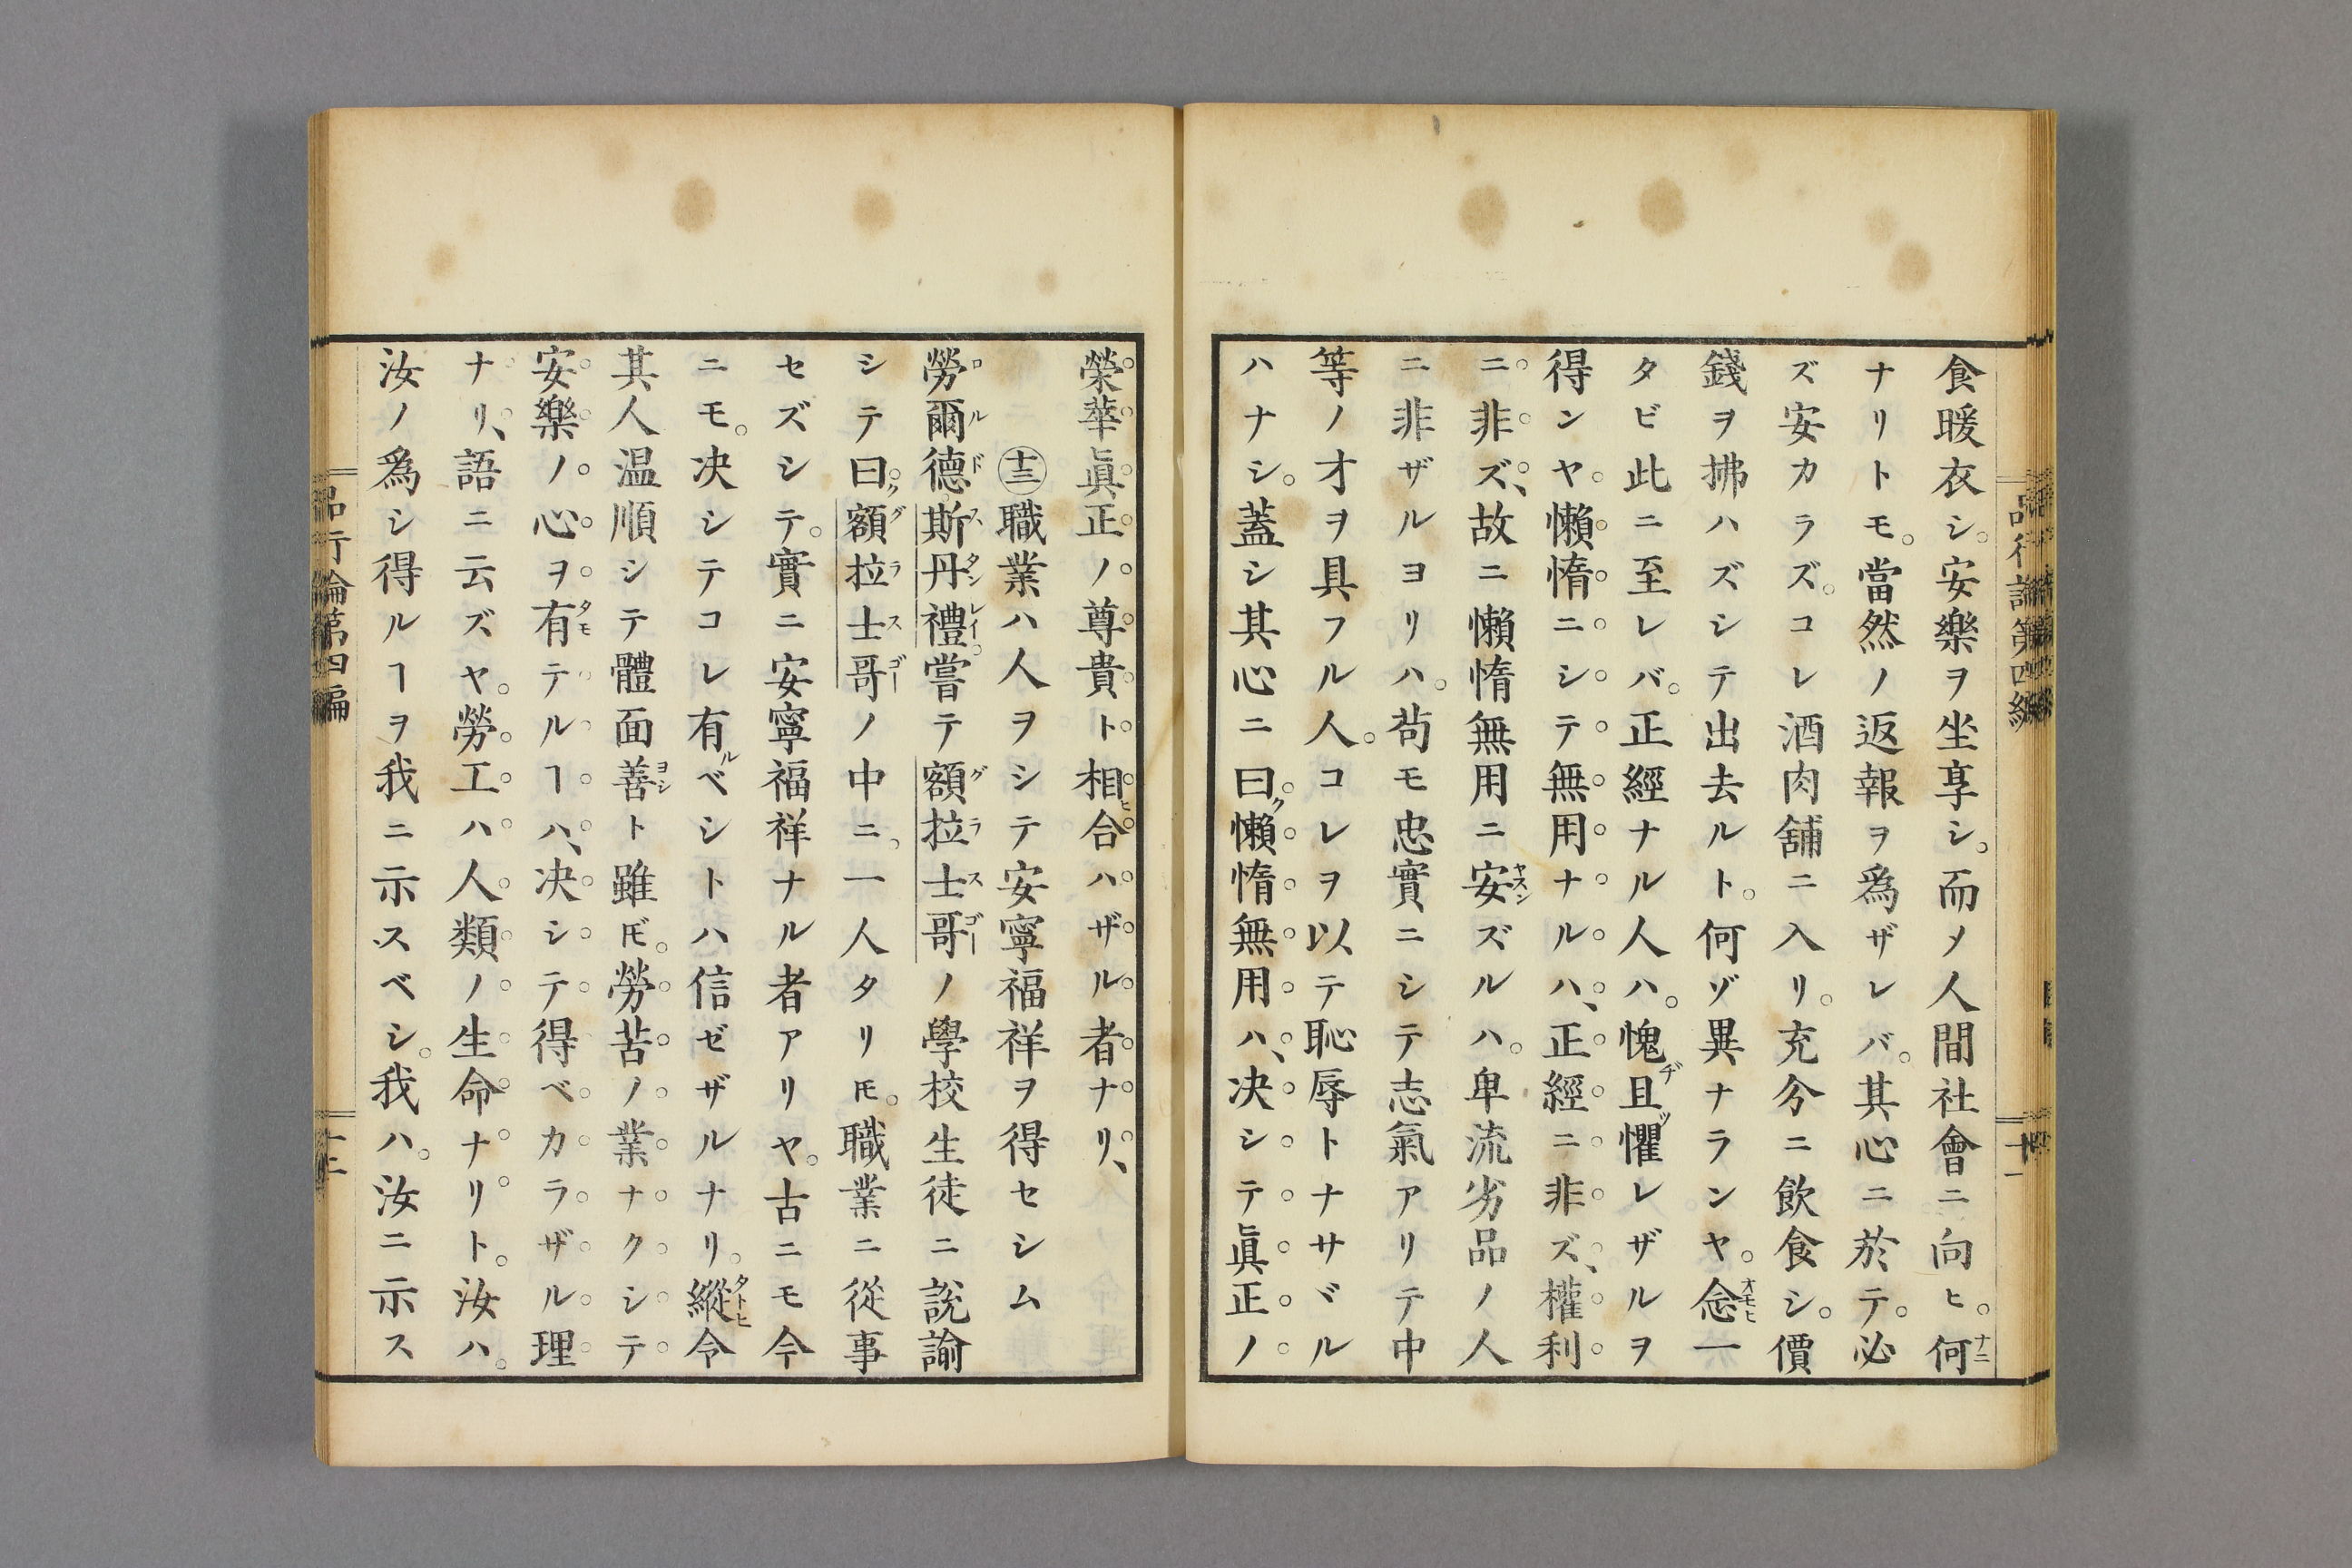 食暖衣シ。安樂ヲ坐享シ。而メ人間社會ニ向ヒ。何
ナリトモ。當然ノ返報ヲ爲ザレバ。其心ニ於テ。必
ズ安カラズ。コレ酒肉舖ニ入リ。充分ニ飲食シ。價
錢ヲ拂ハズシテ出去ルト。何ゾ異ナランヤ。念一
タビ此ニ至レバ。正經ナル人ハ。愧且懼レザルヲ
得ンヤ懶惰ニシテ無用ナルハ、正經ニ非ズ、權利
ニ非ズ、故ニ懶惰無用ニ安ズルハ。卑流劣品ノ人
ニ非ザルヨリハ。苟モ忠實ニシテ志氣アリテ中
等ノ才ヲ具フル人。コレヲ以テ恥辱トナサヾル
ハナシ。蓋シ其心ニ曰ク懶惰無用ハ、决シテ眞正ノ
品行論第四編
十一
榮華眞正ノ尊貴ト相合ハザル者ナリ、
十三職業ハ人ヲシテ安寧福祥ヲ得セシム
勞爾德斯丹禮。嘗テ額拉士哥ノ學校生徒ニ說諭
シテ曰ク。額拉士哥ノ中ニ。一人タリ𪜈。職業ニ從事
セズシテ。實ニ安寧福祥ナル者アリヤ。古ニモ今
ニモ。决シテコレ有ルベシトハ信ゼザルナリ。縱令
其人温順シテ體面善ト雖𪜈。勞苦ノ業ナクシテ
安樂ノ心ヲ有テルヿハ、决シテ得ベカラザル理
ナリ、語ニ云ズヤ。勞工ハ人類ノ生命ナリト。汝ハ。
汝ノ爲シ得ルヿヲ我ニ示スベシ。我ハ。汝ニ示ス
品行論第四編